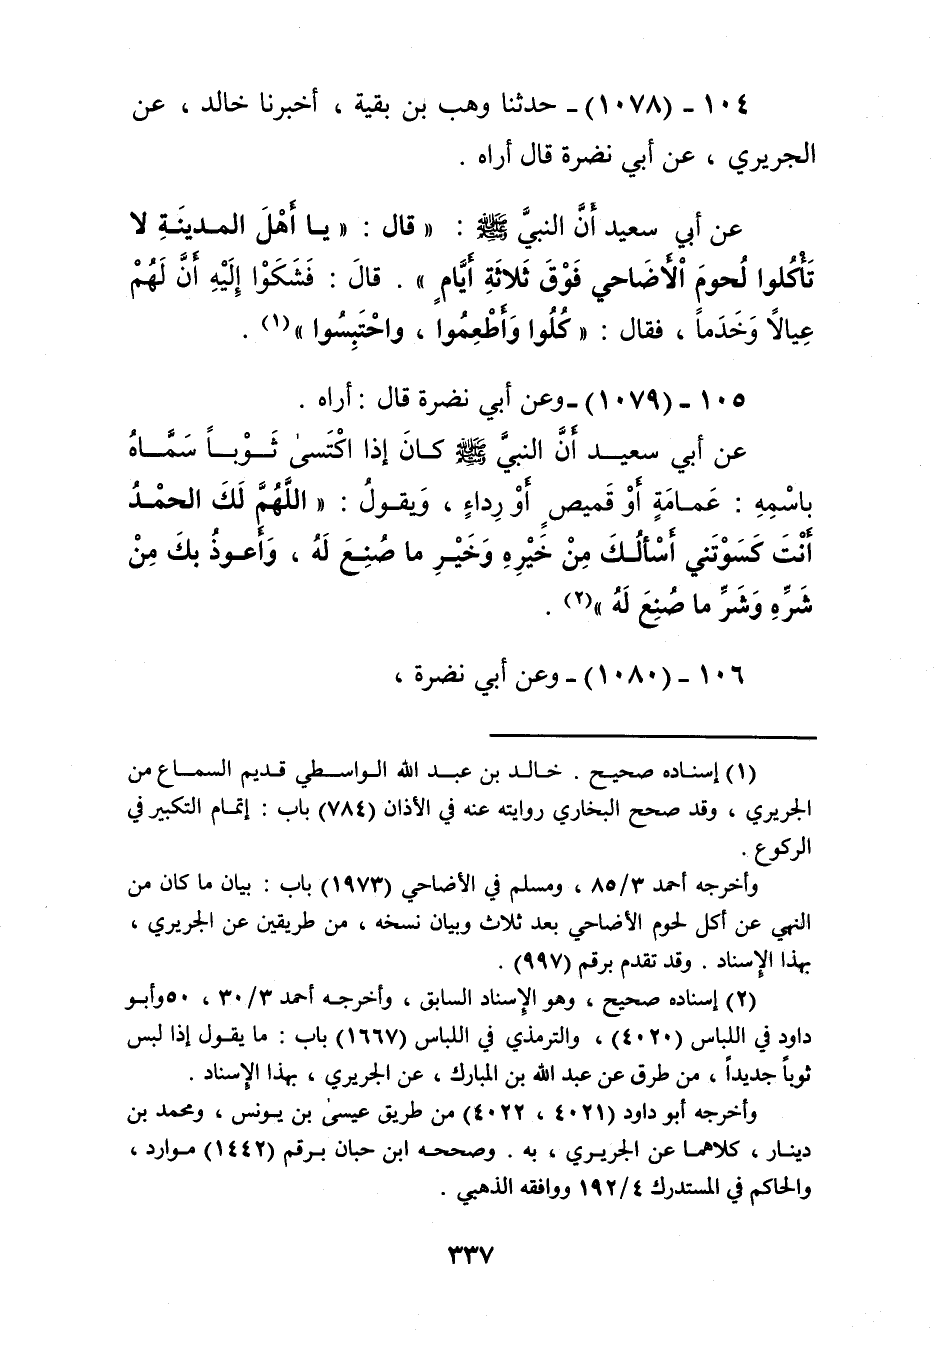 ١٠٤ - (١٠٧٨) - حدثنا وهب بن بقية ، أخبرنا خالد ، عن
الجريري ، عن أبي نضرة قال أراه .
عن أبي سعيد أَنَّ النبيَّ ﷺ : « قال : « يا أَهْلَ المدينَةِ لا
تَأْكُلوا لُحومَ الْأَضَاحي فَوْقَ ثَلاثَةِ أَيَّامٍ » . قالَ : فَشَكَوْا إِلَيْهِ أَنَّ لَهُمْ
عِيالًا وَخَدَماً ، فقال : « كُلُوا وَأَطْعِمُوا ، واحْتَبِسُوا »(١) .
١٠٥ - (١٠٧٩) - وعن أبي نضرة قال : أراه .
عن أبي سعيد أَنَّ النبيَّ ﷺ كانَ إذا اكْتَسىٰ ثَوْباً سَمَّاهُ
باسْمِهِ : عَمامَةٍ أَوْ قَميصٍ أَوْ رِداءٍ ، وَيقولُ : « اللَّهُمَّ لَكَ الحمْدُ
أَنْتَ كَسَوْتَني أَسْأَلُكَ مِنْ خَيْرِهِ وَخَيْرِ ما صُنِعَ لَهُ ، وَأَعوذُ بكَ مِنْ
شَرِّهِ وَشَرِّ ما صُنِعَ لَهُ »(٢) .
١٠٦ - (١٠٨٠) - وعن أبي نضرة ،
(١) إسناده صحيح . خالد بن عبد الله الواسطي قديم السماع من
الجريري ، وقد صحح البخاري روايته عنه في الأذان (٧٨٤) باب : إتمام التكبير في
الركوع .
وأخرجه أحمد ٨٥/٣ ، ومسلم في الأضاحي (١٩٧٣) باب : بيان ما كان من
النهي عن أكل لحوم الأضاحي بعد ثلاث وبيان نسخه ، من طريقين عن الجريري ،
بهذا الإسناد . وقد تقدم برقم (٩٩٧) .
(٢) إسناده صحيح ، وهو الإسناد السابق ، وأخرجه أحمد ٣٠/٣ ، ٥٠ وأبو
داود في اللباس (٤٠٢٠) ، والترمذي في اللباس (١٦٦٧) باب : ما يقول إذا لبس
ثوباً جديداً ، من طرق عن عبد الله بن المبارك ، عن الجريري ، بهذا الإسناد .
وأخرجه أبو داود (٤٠٢١ ، ٤٠٢٢) من طريق عيسىٰ بن يونس ، ومحمد بن
دينار ، كلاهما عن الجريري ، به . وصححه ابن حبان برقم (١٤٤٢) موارد ،
والحاكم في المستدرك ١٩٢/٤ ووافقه الذهبي .
٣٣٧